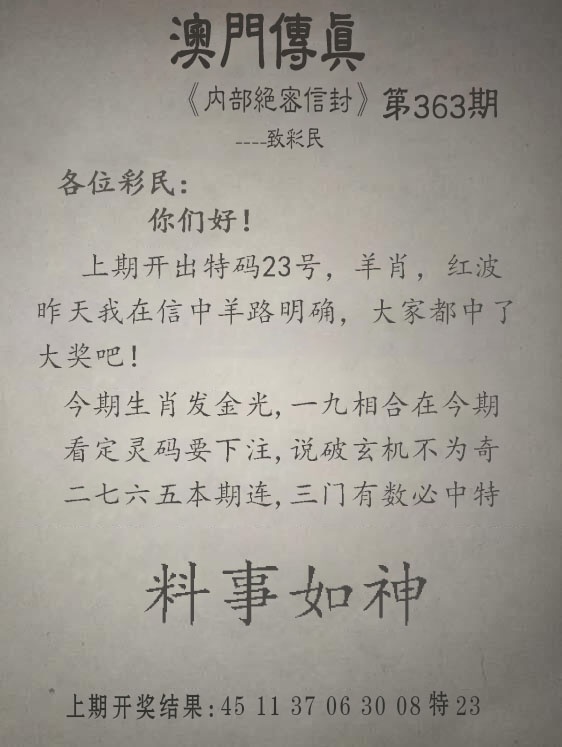 澳門傳真
《内部絕密信封》第363期
----致彩民
各位彩民：
你们好！
上期开出特码23号，羊肖，红波
昨天我在信中羊路明确，大家都中了
大奖吧！
今期生肖发金光,一九相合在今期
看定灵码要下注,说破玄机不为奇
二七六五本期连,三门有数必中特
料事如神
上期开奖结果:45 11 37 06 30 08特23